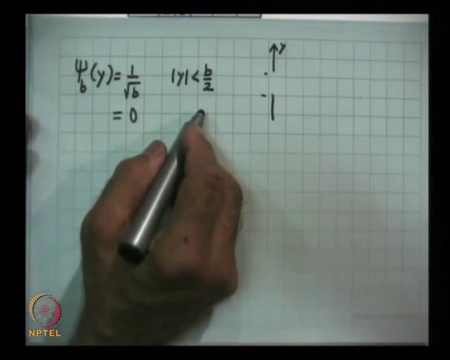 Ψ_b(y) = 1/√b |y| < b/2
= 0
y
NPTEL